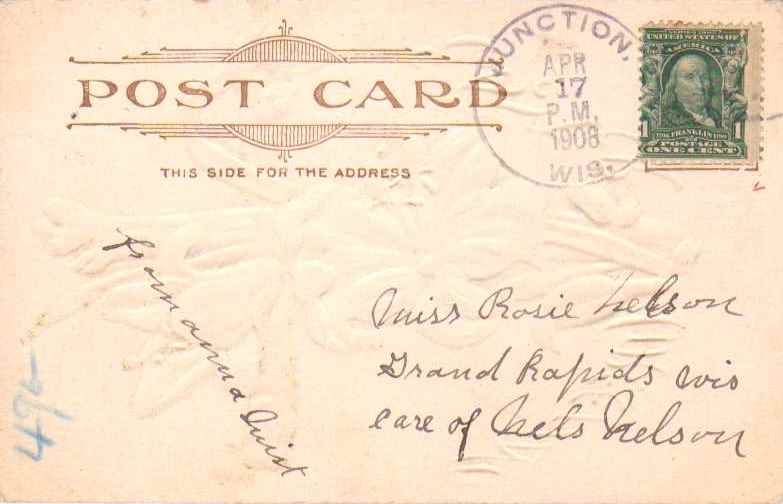 POST CARD
THIS SIDE FOR THE ADDRESS
JUNCTION,
APR
17
P.M.
1908
WIS.
SERIES 1902
UNITED STATES OF
AMERICA
1706 FRANKLIN 1790
1 POSTAGE 1
ONE CENT
from anna Quist
Miss Rosie Nelson
Grand Rapids Wis
care of Nels Nelson